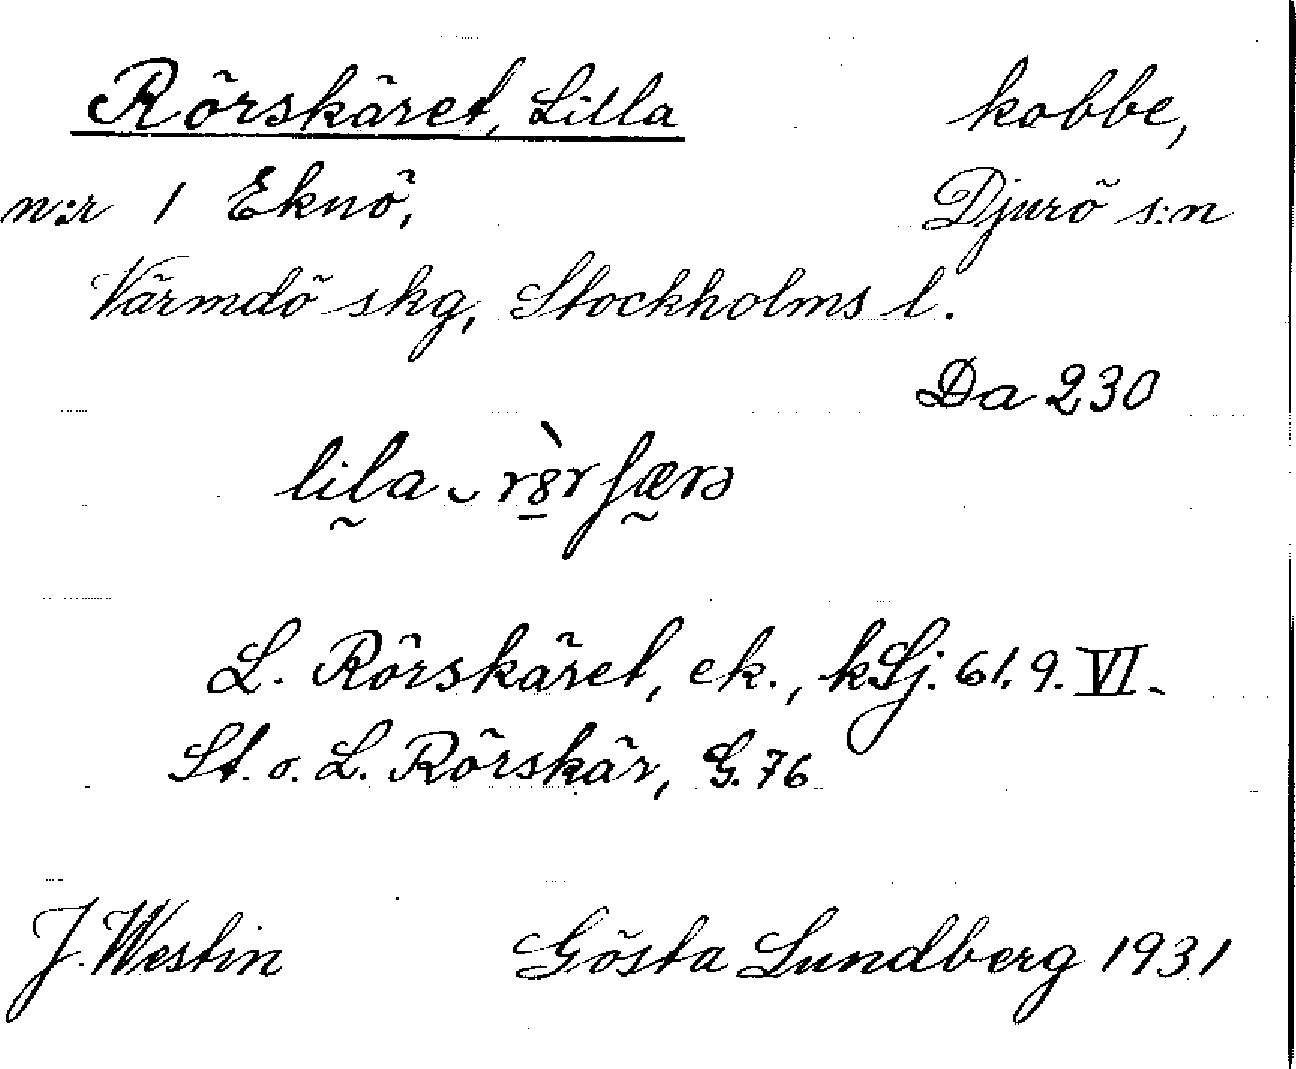 Rörskäret, Lilla kobbe,
n:r 1 Eknö, Djurö s:n
Värmdö skg, Stockholms l.
Da 230
lila
L. Rörskäret, ek., kSj. 61. 9. VI.
St. o. L. Rörskär, G. 76
J. Westin Gösta Lundberg 1931